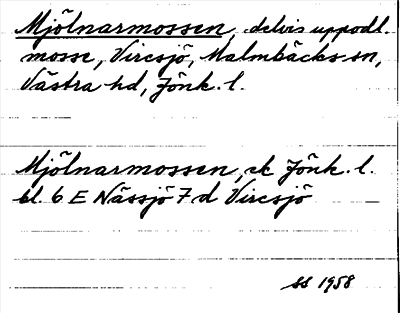 Mjölnarmossen, delvis uppodl.
mosse, Vircsjö, Malmbäcks sn,
Västra hd, Jönk. l.
Mjölnarmossen, ek Jönk. l.
bl. 6 E Nässjö 7 d Vircsjö
ss 1958